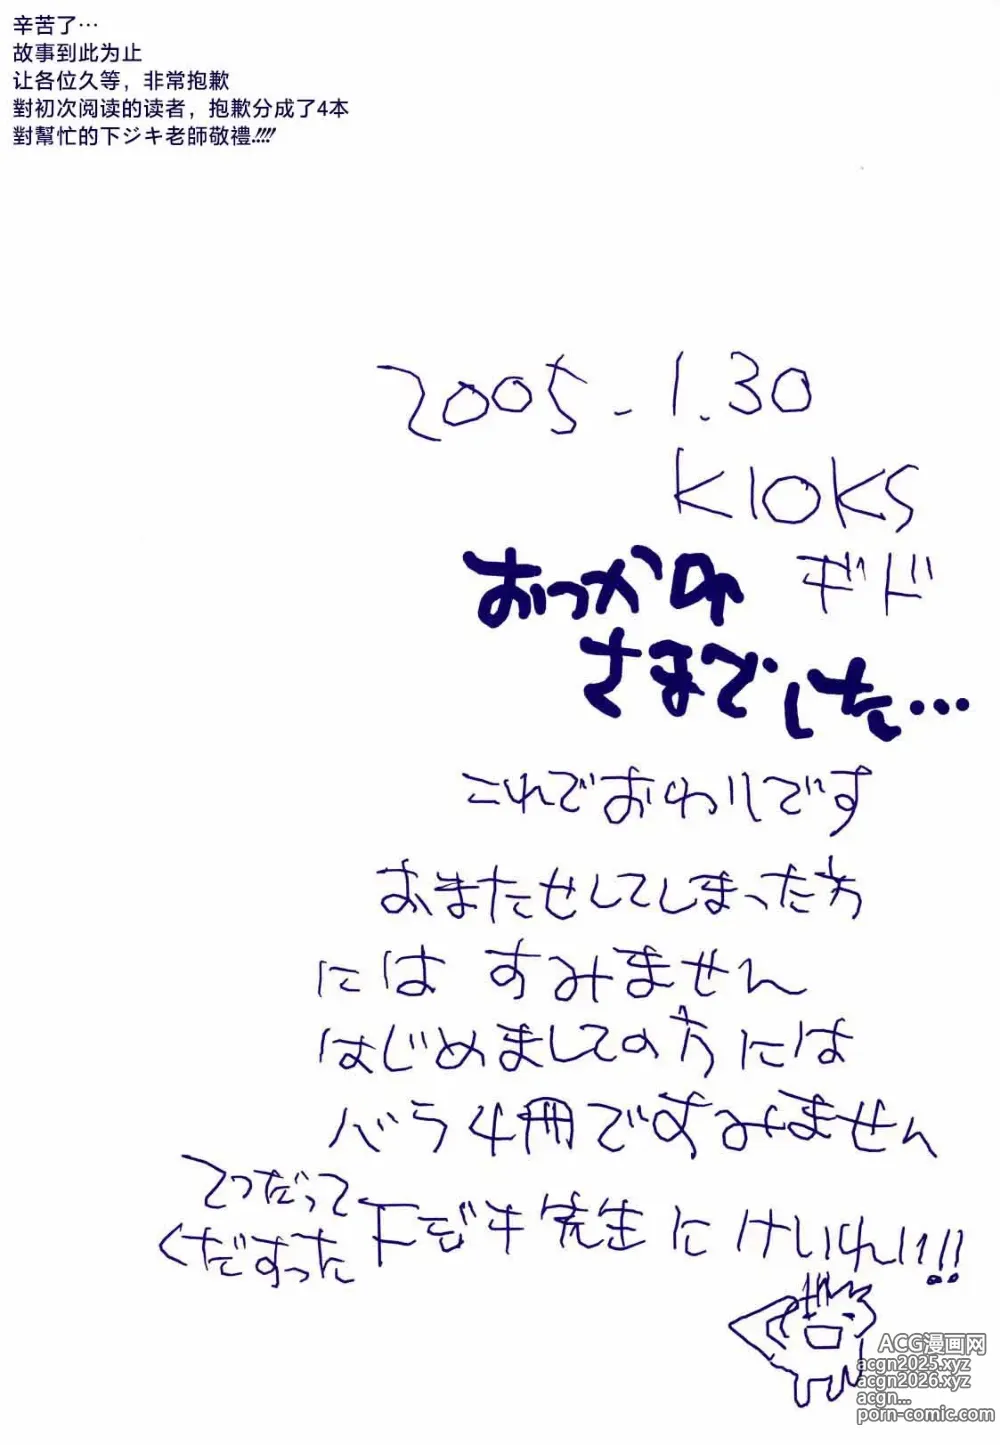 辛苦了…
故事到此为止
让各位久等，非常抱歉
對初次阅读的读者，抱歉分成了4本
對幫忙的下ジキ老師敬禮!!!!
2005-1.30
KIOKS
ギド
おつかれ
さまでした…
これでおわりです
おまたせしてしまった方
には すみません
はじめましての方には
バラ4冊ですみません
てつだって
くだすった
下ジキ先生にけいれい!!
ACG漫画网
acgn2025.xyz
acgn2026.xyz
acgn...
porn-comic.com